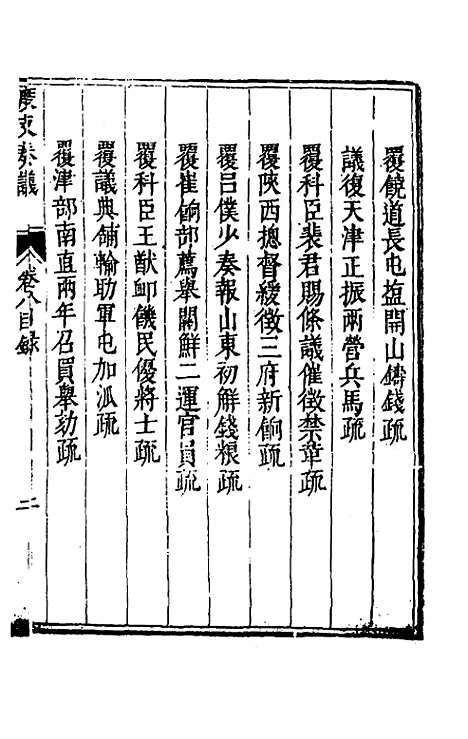 覆饒道長屯盐開山鑄錢疏
議復天津正振兩營兵馬疏
覆科臣裴君賜條議催徵禁革疏
覆陝西摠督緩徵三府新餉疏
覆呂僕少奏報山東初解錢粮疏
覆崔餉部薦舉關鮮二運官員疏
覆科臣王猷卹饑民優將士疏
覆議典舖輸助軍屯加派疏
覆津部南直兩年召買舉劾疏
度支奏議
卷八目録
二